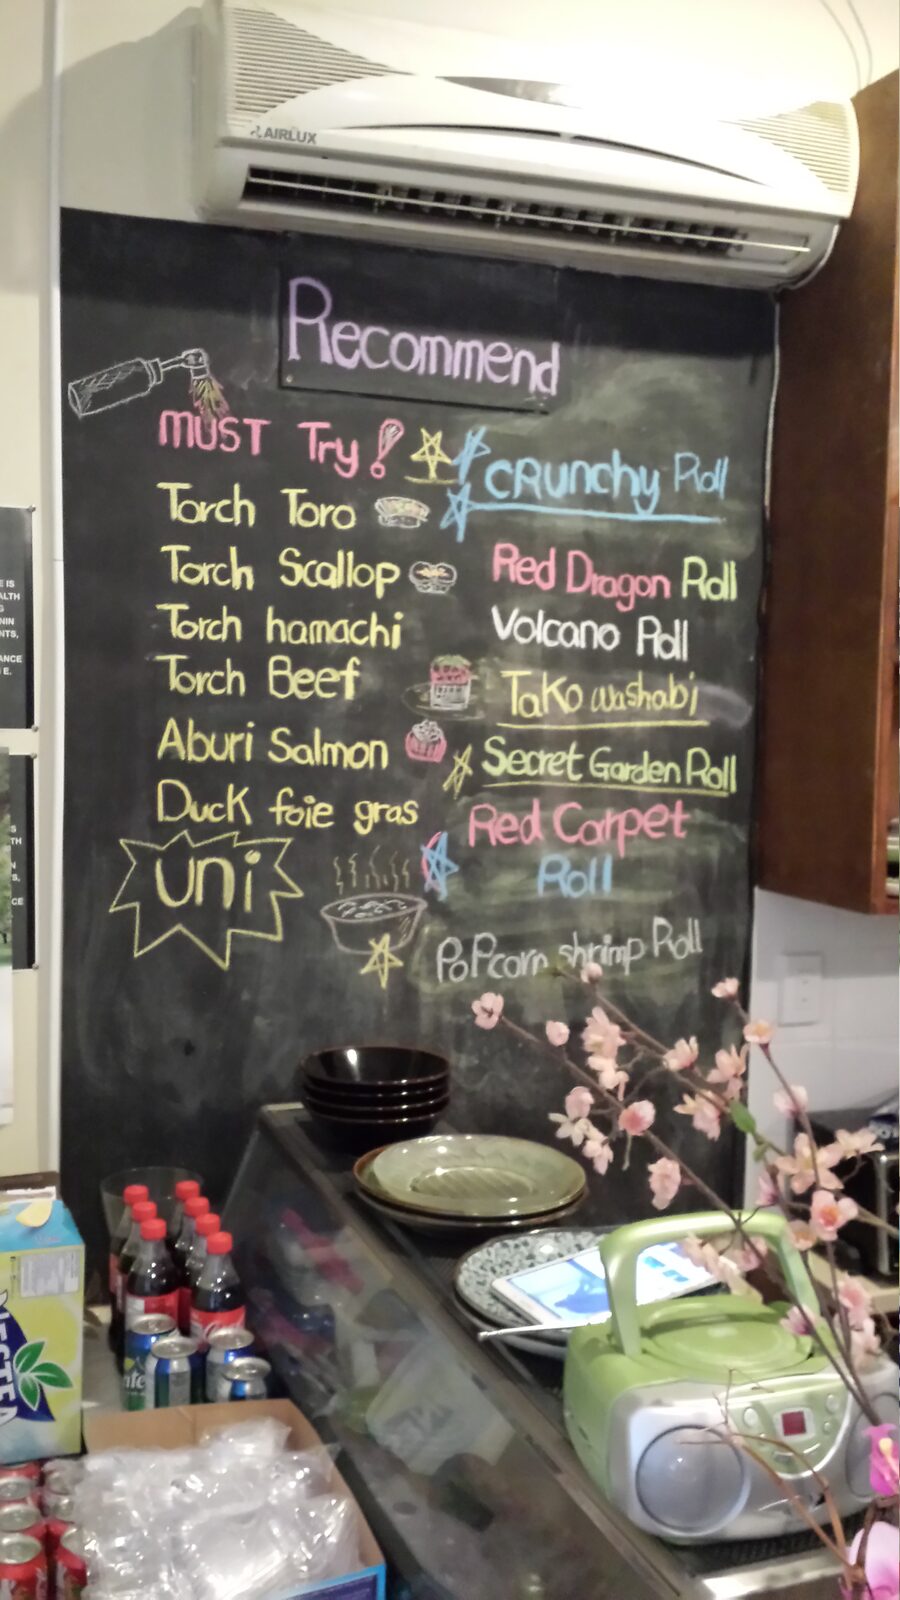 AIRLUX
Recommend
MUST Try!
Torch Toro
Torch Scallop
Torch hamachi
Torch Beef
Aburi Salmon
Duck foie gras
uni
CRunchy Roll
Red Dragon Roll
Volcano Roll
TaKo washabi
Secret Garden Roll
Red Carpet
Roll
PoPcorn shrimp Roll
E IS
ALTH
NIN
NTS,
ANCE
E.
TH
CE